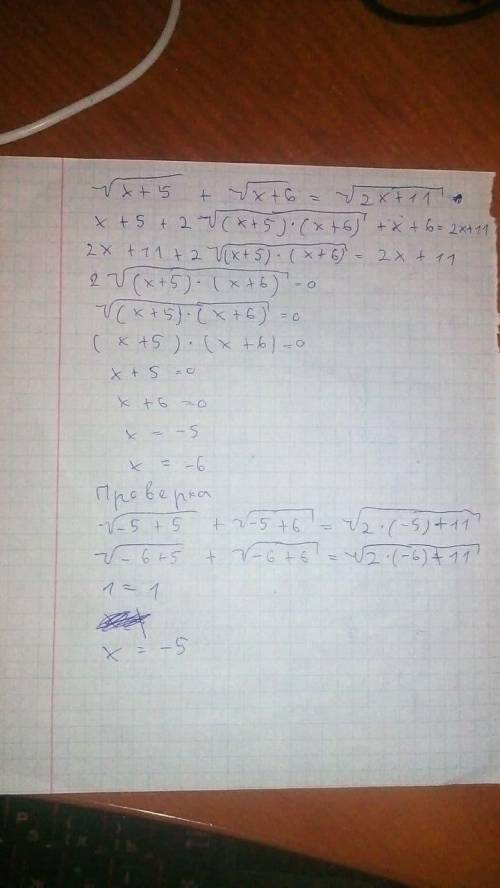 √(x+5) + √(x+6) = √(2x+11)
x+5+2√((x+5)·(x+6)) +x+6=2x+11
2x+11+2√((x+5)·(x+6)) = 2x+11
2√((x+5)·(x+6)) =0
√((x+5)·(x+6)) =0
(x+5)·(x+6)=0
x+5=0
x+6=0
x = -5
x = -6
Проверка
√(-5+5) + √(-5+6) = √(2·(-5)+11)
√(-6+5) + √(-6+6) = √(2·(-6)+11)
1=1
x = -5